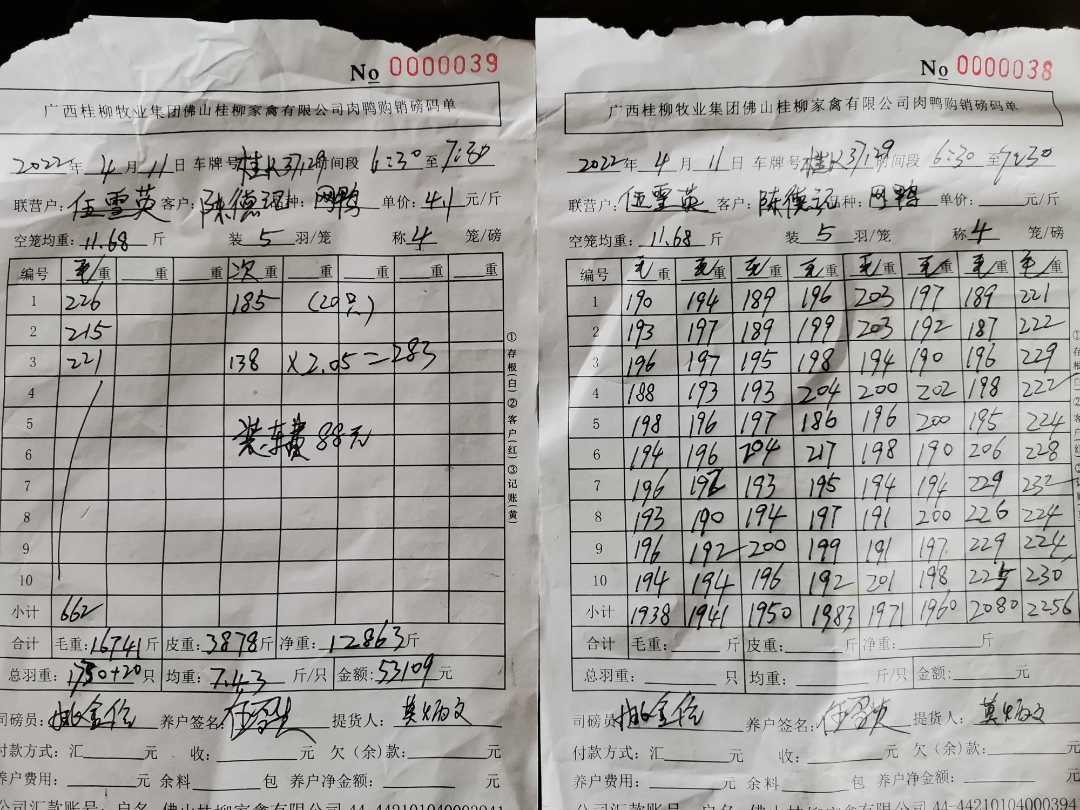 No 0000039
广西桂柳牧业集团佛山桂柳家禽有限公司肉鸭购销磅码单
2022年 4 月 11 日 车牌号 桂K37129 时间段 6:30 至 7:30
联营户: 伍雪英 客户: 陈德记 品种: 网鸭 单价: 4.1 元/斤
空笼均重: 11.68 斤 装 5 羽/笼 称 4 笼/磅
编号 毛重 重 重 次重 重 重 重 重
1 226 185 (20只)
2 215
3 221 138 ×2.05=283
4
5 装车费 88元
6
7
8
9
10
小计 662
合计 毛重: 16741 斤 皮重: 3878 斤 净重: 12863 斤
总羽重: 1730+20 只 均重: 7.43 斤/只 金额: 53109 元
司磅员: 养户签名: 提货人: 莫炳文
付款方式: 汇 元 收: 元 欠（余）款: 元
养户费用: 元 余料 包 养户净金额: 元
公司汇款账号: 户名 佛山桂柳家禽有限公司 44-442101040003941
①存根(白)②客户(红)③记账(黄)
No 0000038
广西桂柳牧业集团佛山桂柳家禽有限公司肉鸭购销磅码单
2022年 4 月 11 日 车牌号 桂K37129 时间段 6:30 至 7:30
联营户: 伍雪英 客户: 陈德记 品种: 网鸭 单价: 元/斤
空笼均重: 11.68 斤 装 5 羽/笼 称 4 笼/磅
编号 毛重 毛重 毛重 毛重 毛重 毛重 毛重 毛重
1 190 194 189 196 203 197 189 221
2 193 197 189 199 203 192 187 222
3 196 197 195 198 194 190 196 229
4 188 193 193 204 200 202 198 222
5 198 196 197 186 196 200 195 224
6 194 196 204 217 198 190 206 228
7 196 192 193 195 194 194 229 232
8 193 190 194 197 191 200 226 224
9 196 192 200 199 191 197 229 224
10 194 194 196 192 201 198 225 230
小计 1938 1941 1950 1983 1971 1960 2080 2256
合计 毛重: 斤 皮重: 斤 净重: 斤
总羽重: 只 均重: 斤/只 金额: 元
司磅员: 养户签名: 提货人: 莫炳文
付款方式: 汇 元 收: 元 欠（余）款: 元
养户费用: 元 余料 包 养户净金额: 元
公司汇款账号: 户名 佛山桂柳家禽有限公司 44-44210104000394